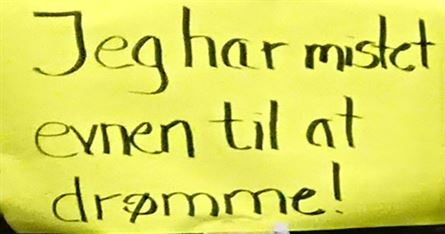 Jeg har mistet
evnen til at
drømme!